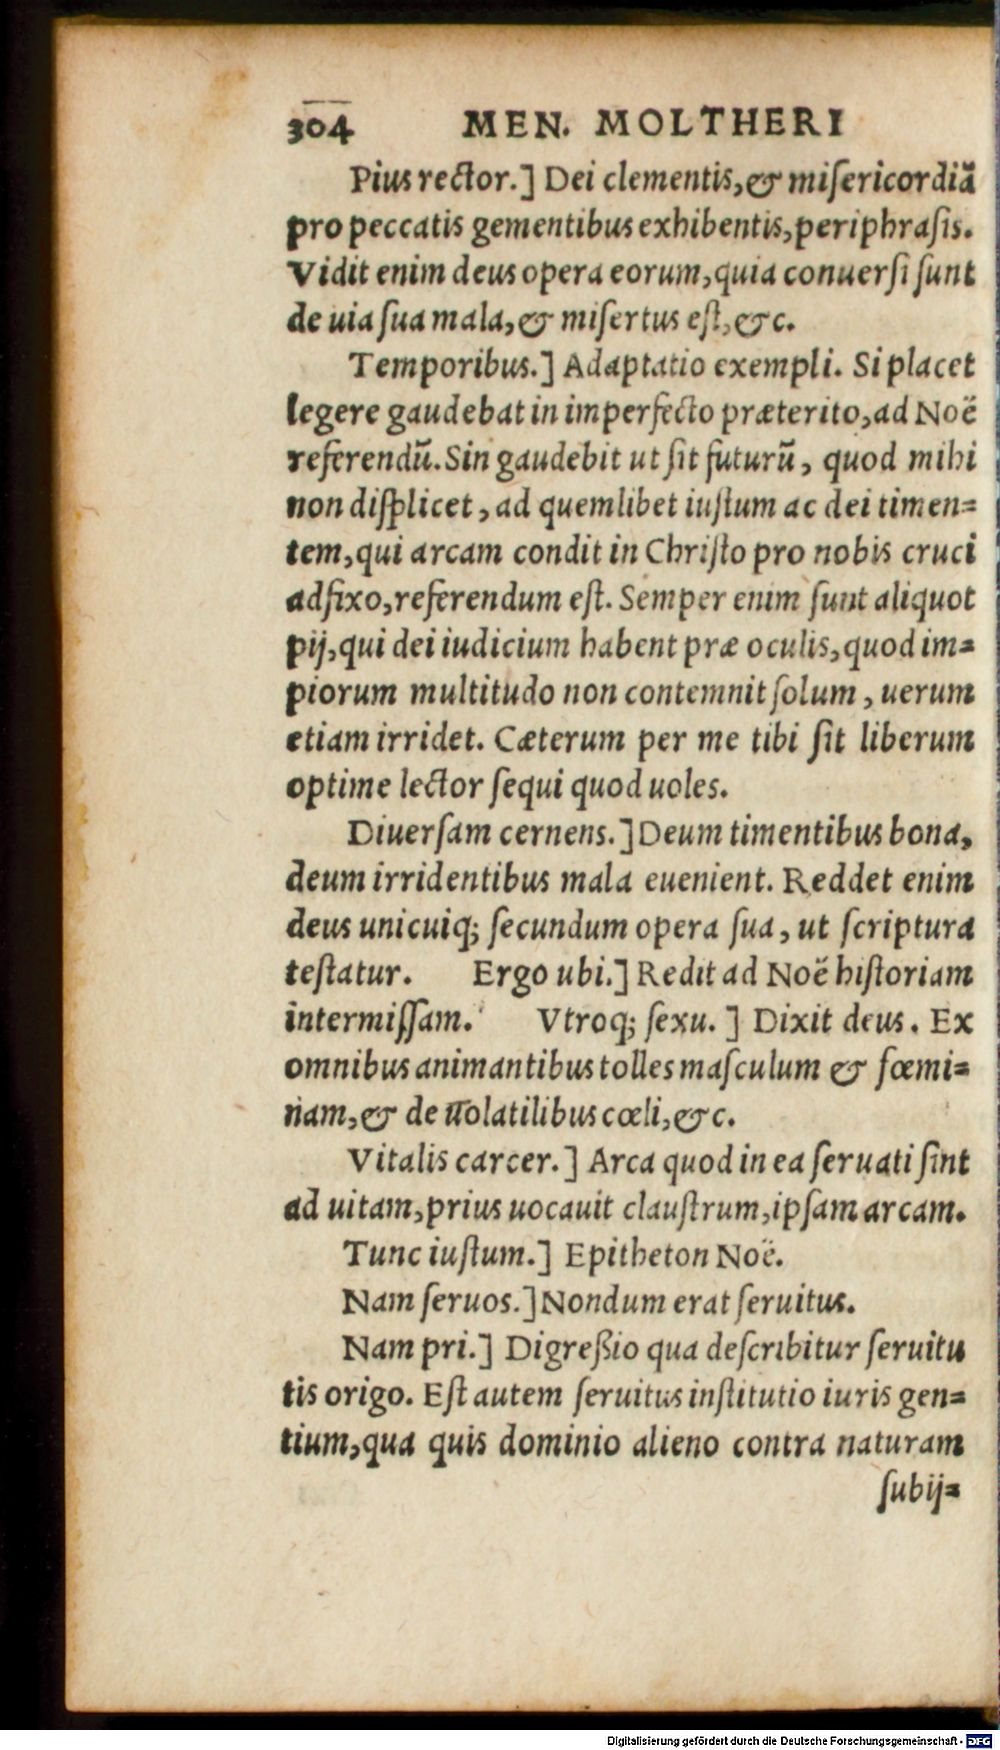 304 MEN. MOLTHERI
Pius rector.] Dei clementis, & misericordiã
pro peccatis gementibus exhibentis, periphrasis.
Vidit enim deus opera eorum, quia conuersi sunt
de uia sua mala, & misertus est, &c.
Temporibus.] Adaptatio exempli. Si placet
legere gaudebat in imperfecto præterito, ad Noë
referendũ. Sin gaudebit ut sit futurũ, quod mihi
non displicet, ad quemlibet iustum ac dei timen=
tem, qui arcam condit in Christo pro nobis cruci
adfixo, referendum est. Semper enim sunt aliquot
pij, qui dei iudicium habent præ oculis, quod im=
piorum multitudo non contemnit solum, uerum
etiam irridet. Cæterum per me tibi sit liberum
optime lector sequi quod uoles.
Diuersam cernens.] Deum timentibus bona,
deum irridentibus mala euenient. Reddet enim
deus unicuiq; secundum opera sua, ut scriptura
testatur. Ergo ubi.] Redit ad Noë historiam
intermissam. Vtroq; sexu.] Dixit deus. Ex
omnibus animantibus tolles masculum & fœmi=
nam, & de uolatilibus cœli, &c.
Vitalis carcer.] Arca quod in ea seruati sint
ad uitam, prius uocauit claustrum, ipsam arcam.
Tunc iustum.] Epitheton Noë.
Nam seruos.] Nondum erat seruitus.
Nam pri.] Digreßio qua describitur seruitu
tis origo. Est autem seruitus institutio iuris gen=
tium, qua quis dominio alieno contra naturam
subij=
Digitalisierung gefördert durch die Deutsche Forschungsgemeinschaft - DFG